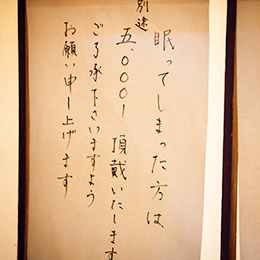 眠ってしまった方は
別途
五、〇〇〇ー 頂戴いたします
ご了承下さいますよう
お願い申し上げます